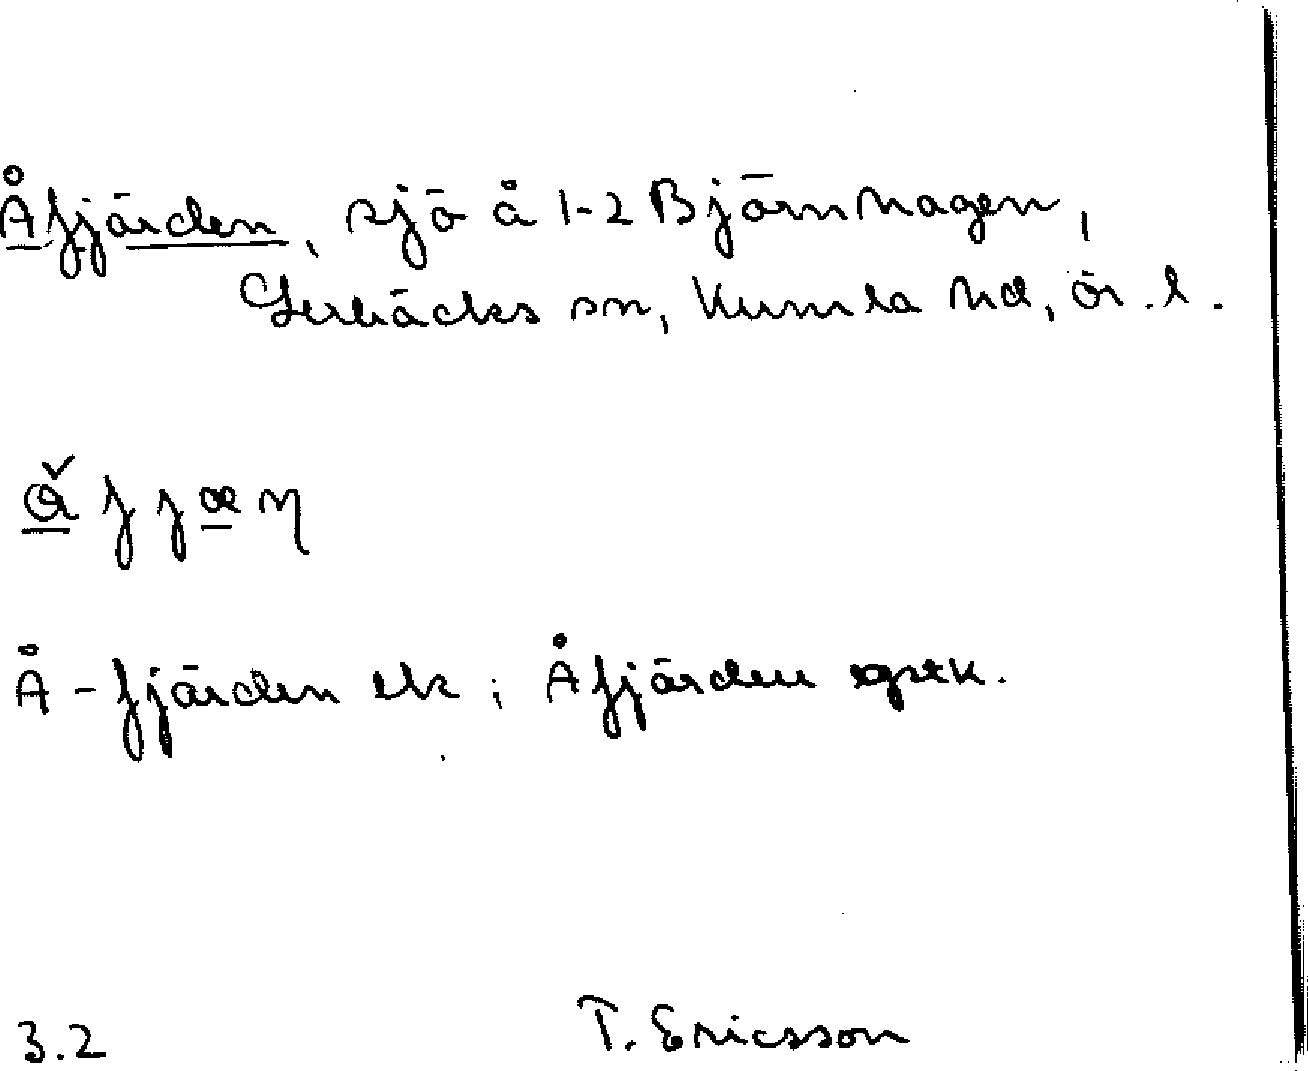 Åfjärden, sjö å 1-2 Björnhagen,
Lerbäcks sn, Kumla hd, ör. l.
Å-fjärden ek; Åfjärden gsek.
3.2 T. Ericsson